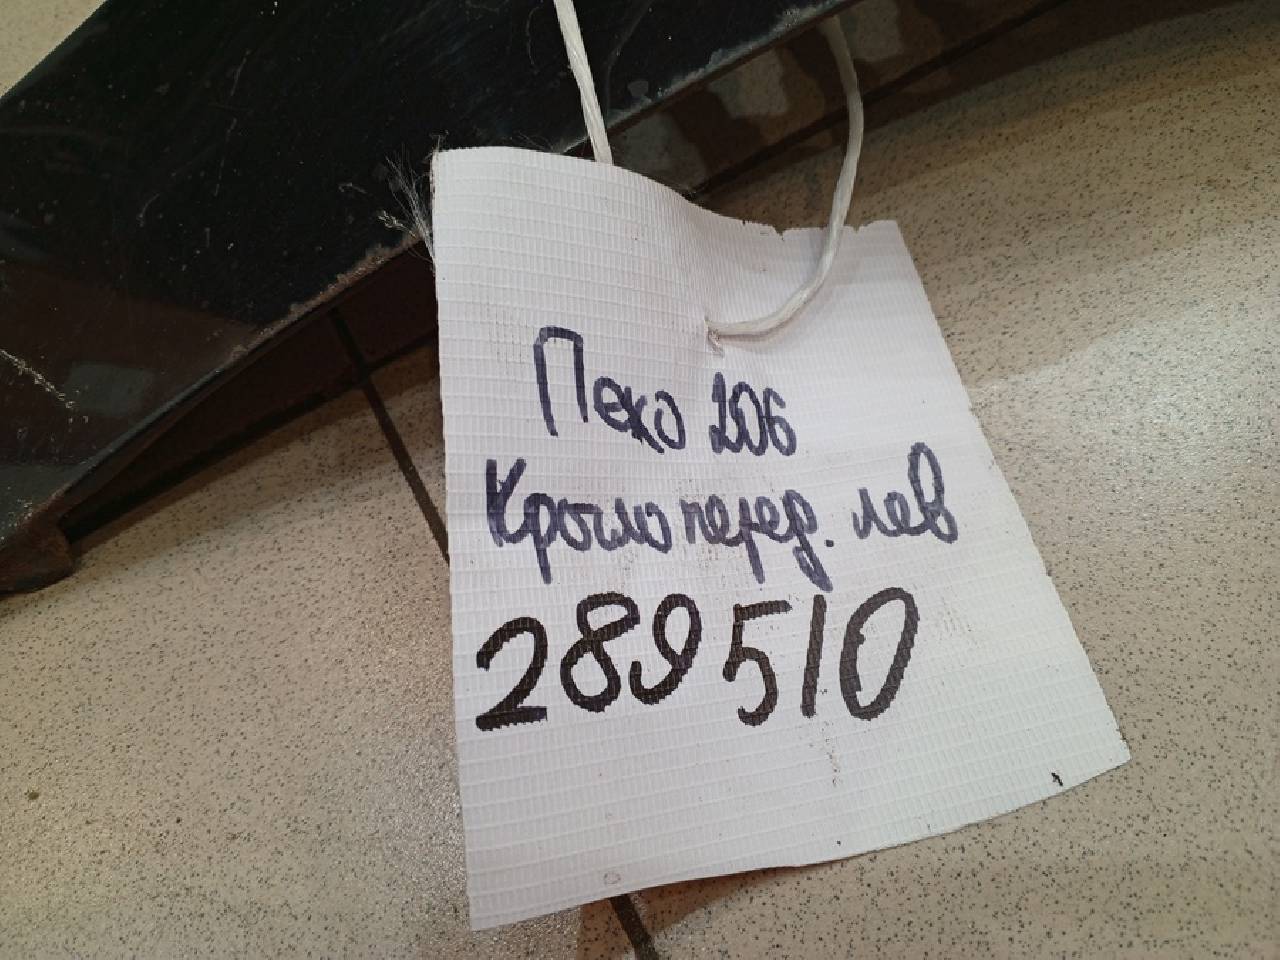 Пежо 206
Крыло перед. лев
289510